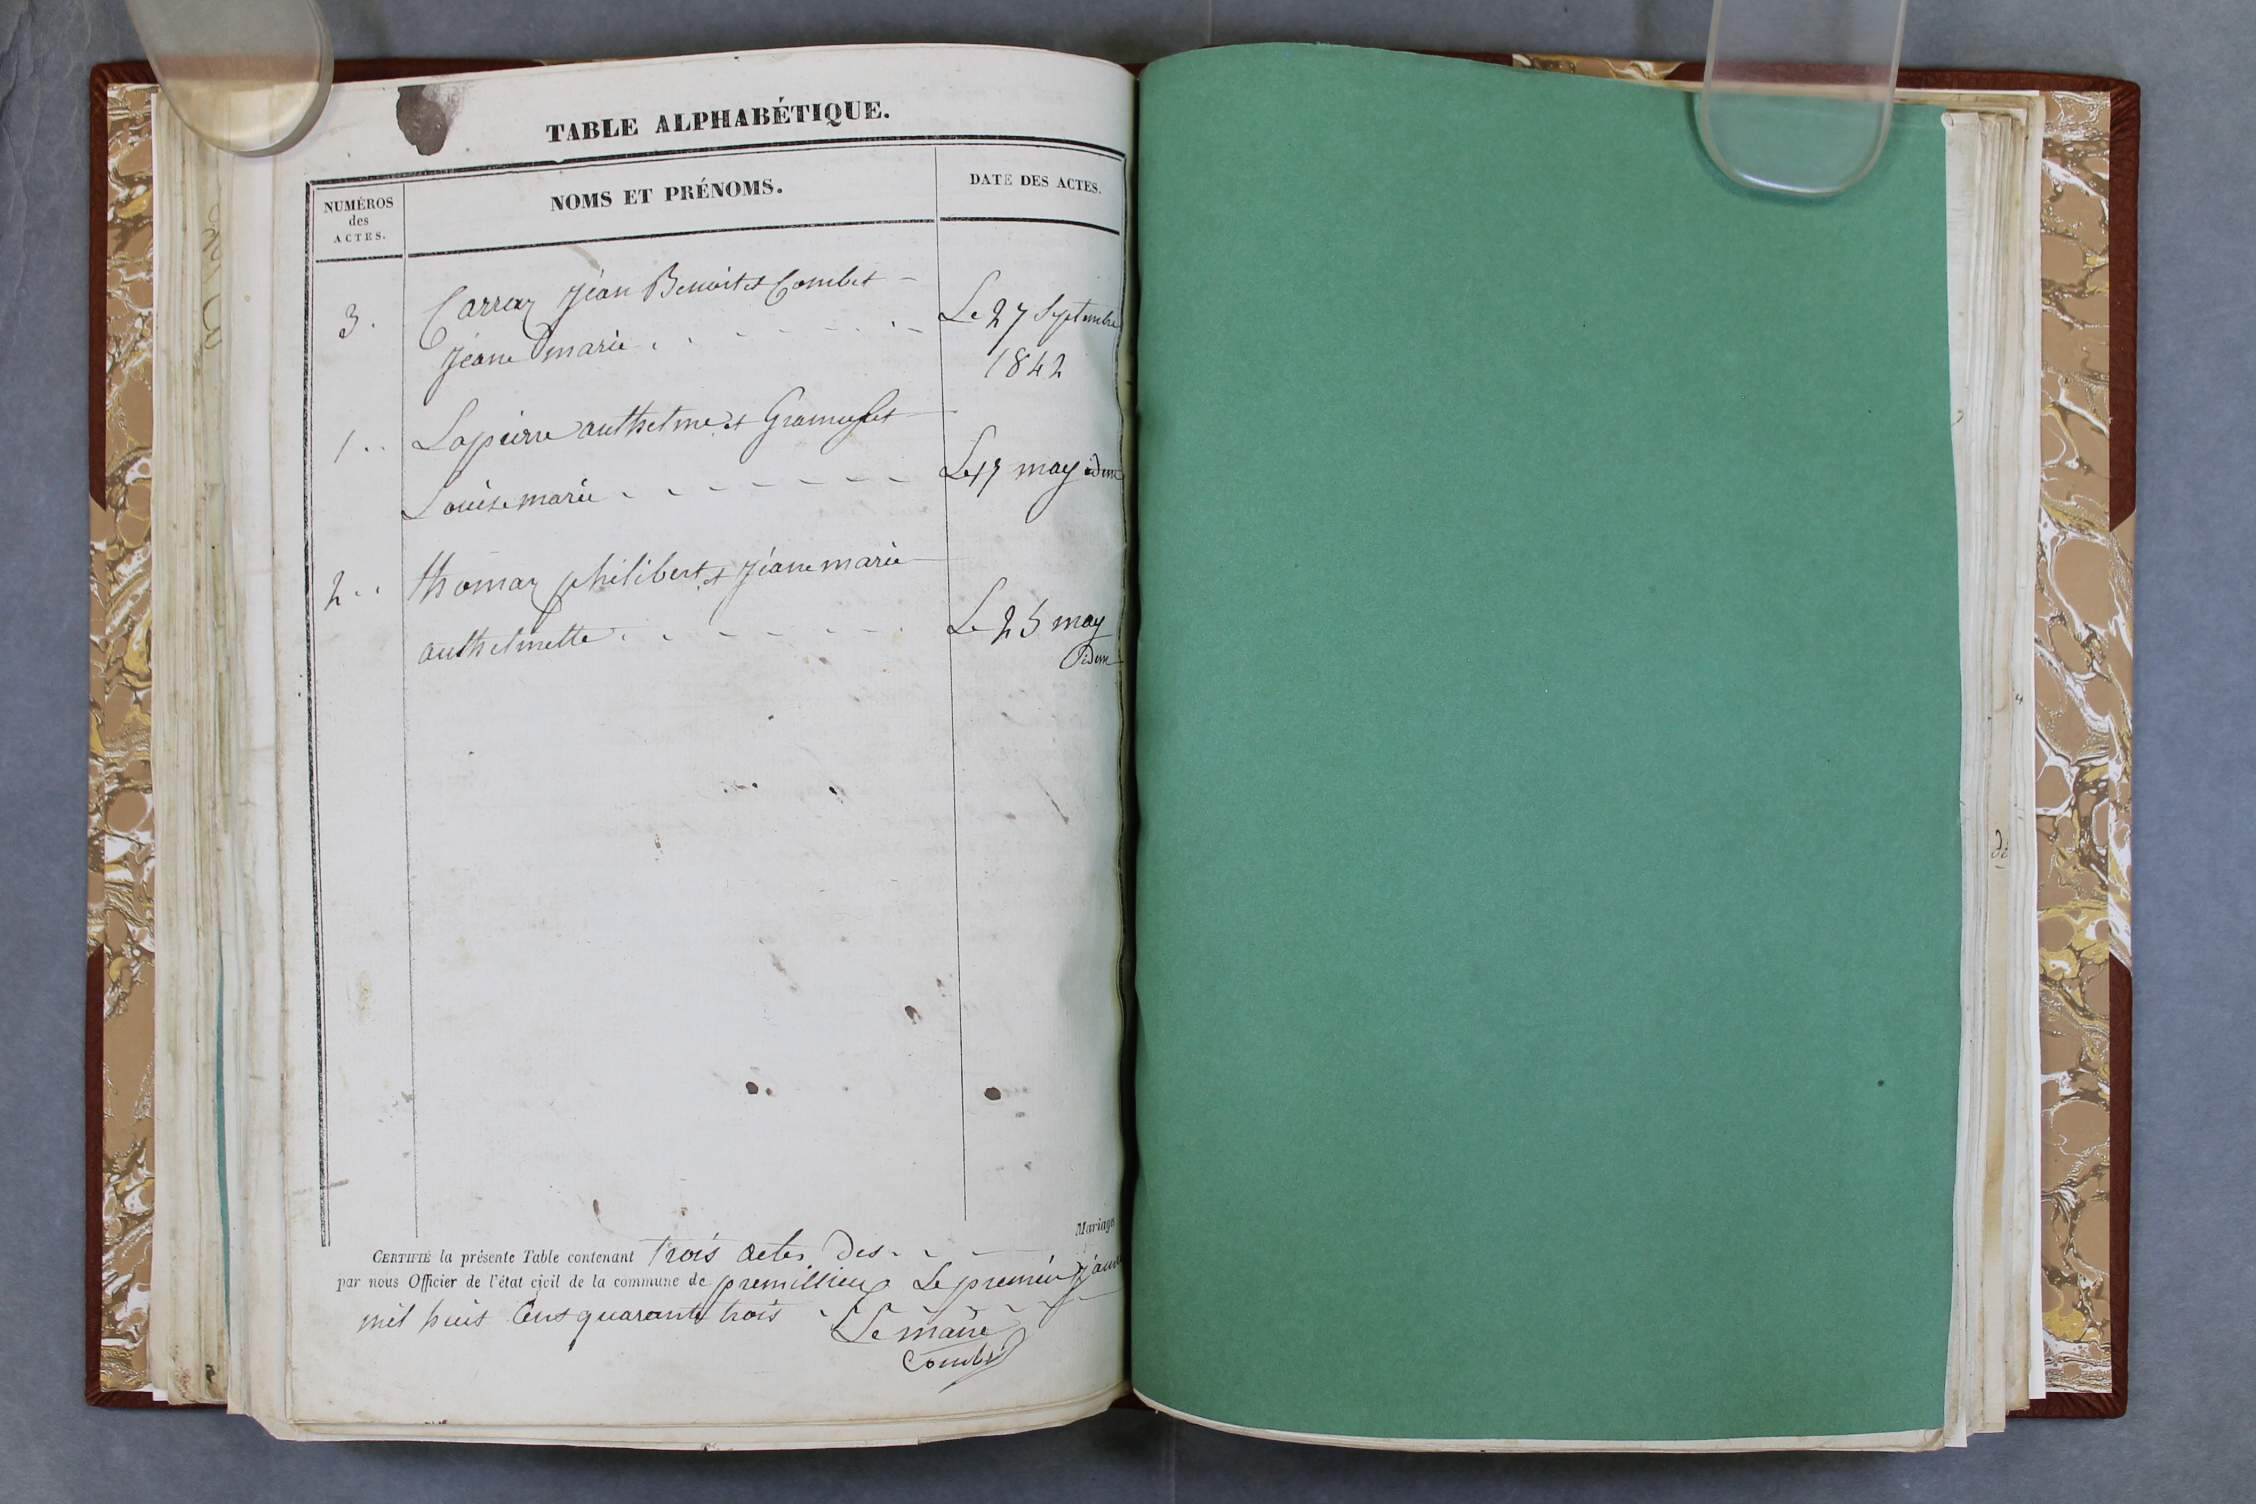 TABLE ALPHABÉTIQUE.
NUMÉROS
des
ACTES.
NOMS ET PRÉNOMS.
DATE DES ACTES.
3. Carraz jéan Benoit et Combet
jéane marie Le 27 Septembre
1842
1 Lapierre anthelme et
Louise marie Le 17 may idem
2 thomaz philibert et jéane marie
anthelmette Le 25 may
idem
Mariages
CERTIFIÉ la présente Table contenant trois actes des
par nous Officier de l'état civil de la commune de premillieu Le premier janvier
mil huit Cent quarante trois
Le maire
Combet